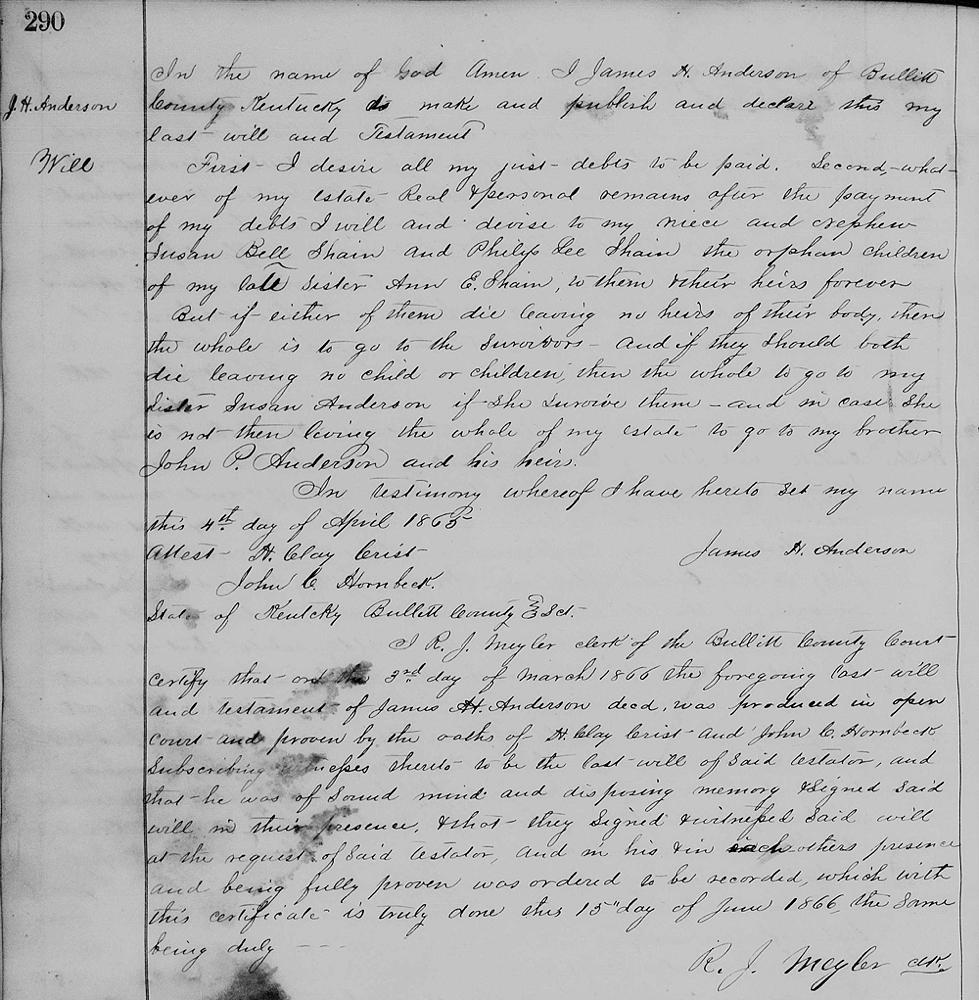 290
In the name of God Amen. I James H. Anderson of Bullitt
J. H. Anderson
County Kentucky do make and publish and declare this my
last will and Testament
Will
First I desire all my just debts to be paid. Second, what-
ever of my estate Real & personal remains after the payment
of my debts I will and devise to my niece and nephew
Susan Bell Shain and Philip Lee Shain the orphan children
of my late Sister Ann E. Shain, to them & their heirs forever
But if either of them die leaving no heirs of their body, then
the whole is to go to the Survivors - and if they should both
die leaving no child or children, then the whole to go to my
Sister Susan Anderson if She survive them - and in case She
is not then living the whole of my estate to go to my brother
John P. Anderson and his heir.
In testimony whereof I have hereto Set my name
this 4th day of April 1865
Attest H. Clay Crist
James H. Anderson
John C. Hornbeck.
State of Kentcky Bullitt County Sct.
I R. J. Meyler clerk of the Bullitt County Court
certify that on the 3rd day of March 1866 the foregoing last will
and testament of James H. Anderson decd, was produced in open
court and proven by the oaths of H. Clay Crist and John C. Hornbeck
Subscribing witnesses thereto to be the last will of Said testator, and
that he was of Sound mind and disposing memory & Signed Said
will in their presence, & that they Signed & witnessed Said will
at the request of Said testator, and in his & in each others presence
and being fully proven was ordered to be recorded, which with
this certificate is truly done this 15" day of June 1866, the Same
being duly - - -
R. J. Meyler clk.